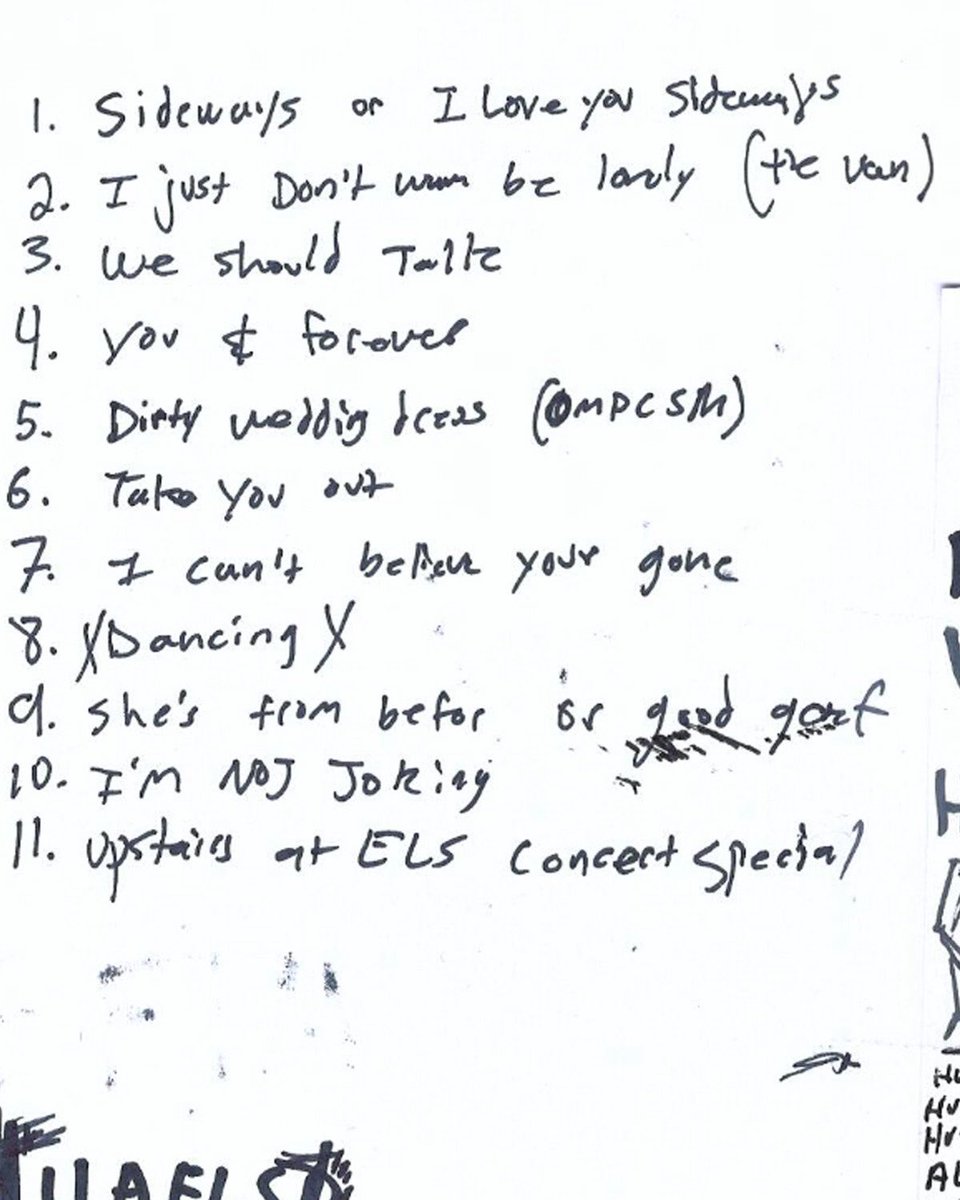 1. Sideways or I Love you Sideways
2. I just Don't wan be lonly (the van)
3. We should Talk
4. you & forover
5. Dirty wedding dress (OMPCSM)
6. Take You out
7. I can't believe your gone
8. X Dancing X
9. She's from befor or good
10. I'm NOT Joking
11. Upstairs at ELS Concert Special